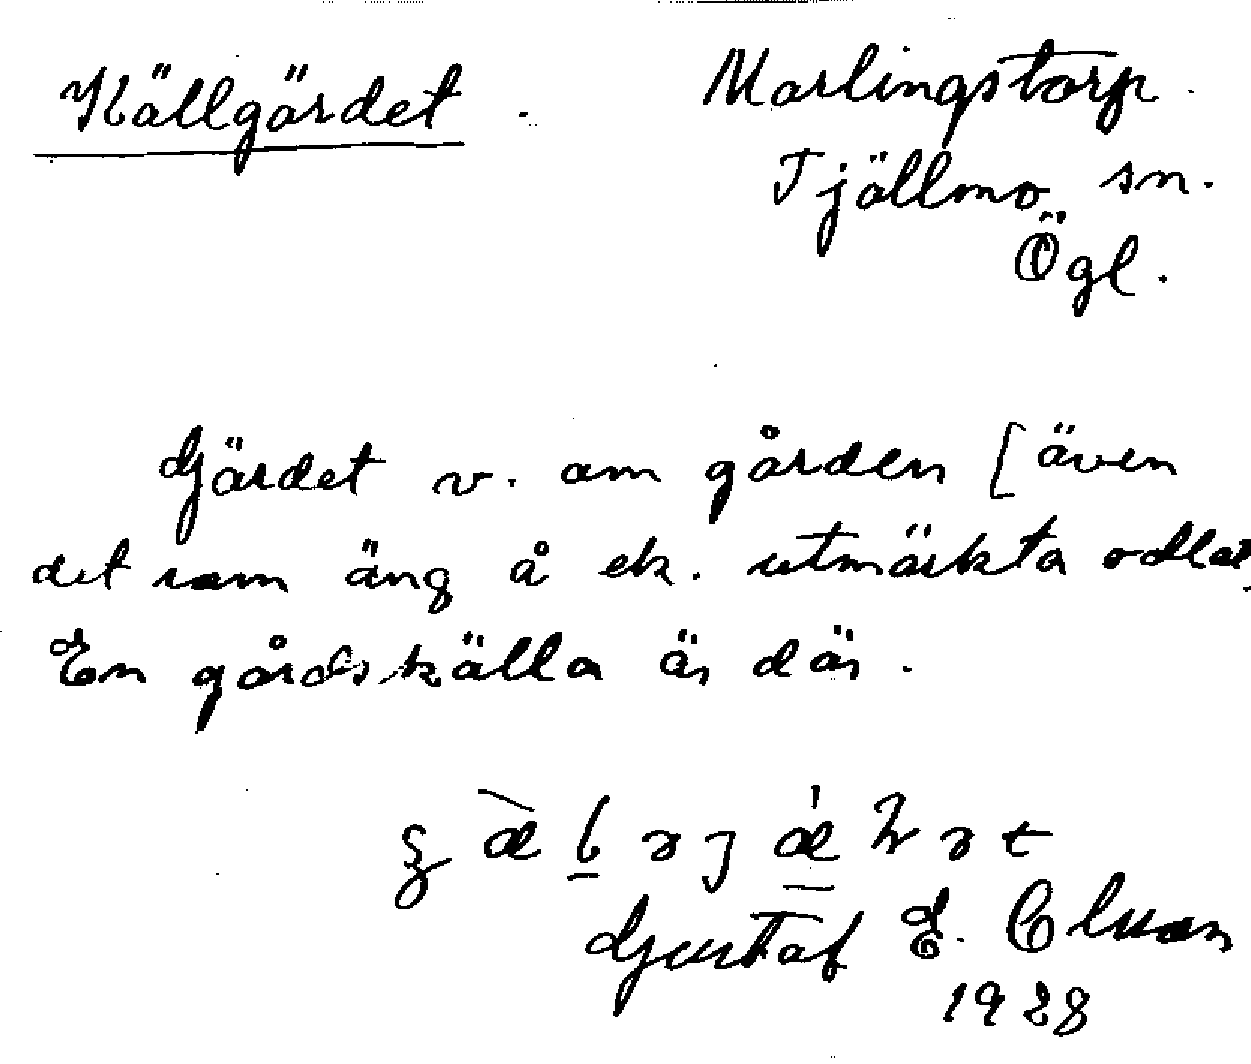 Källgärdet.
Marlingstorp.
Tjällmo sn.
Ögl.
Gärdet v. om gården [även
det som äng å ek. utmärkta odlat.
En gårdskälla är där.
Gustaf E.
1928